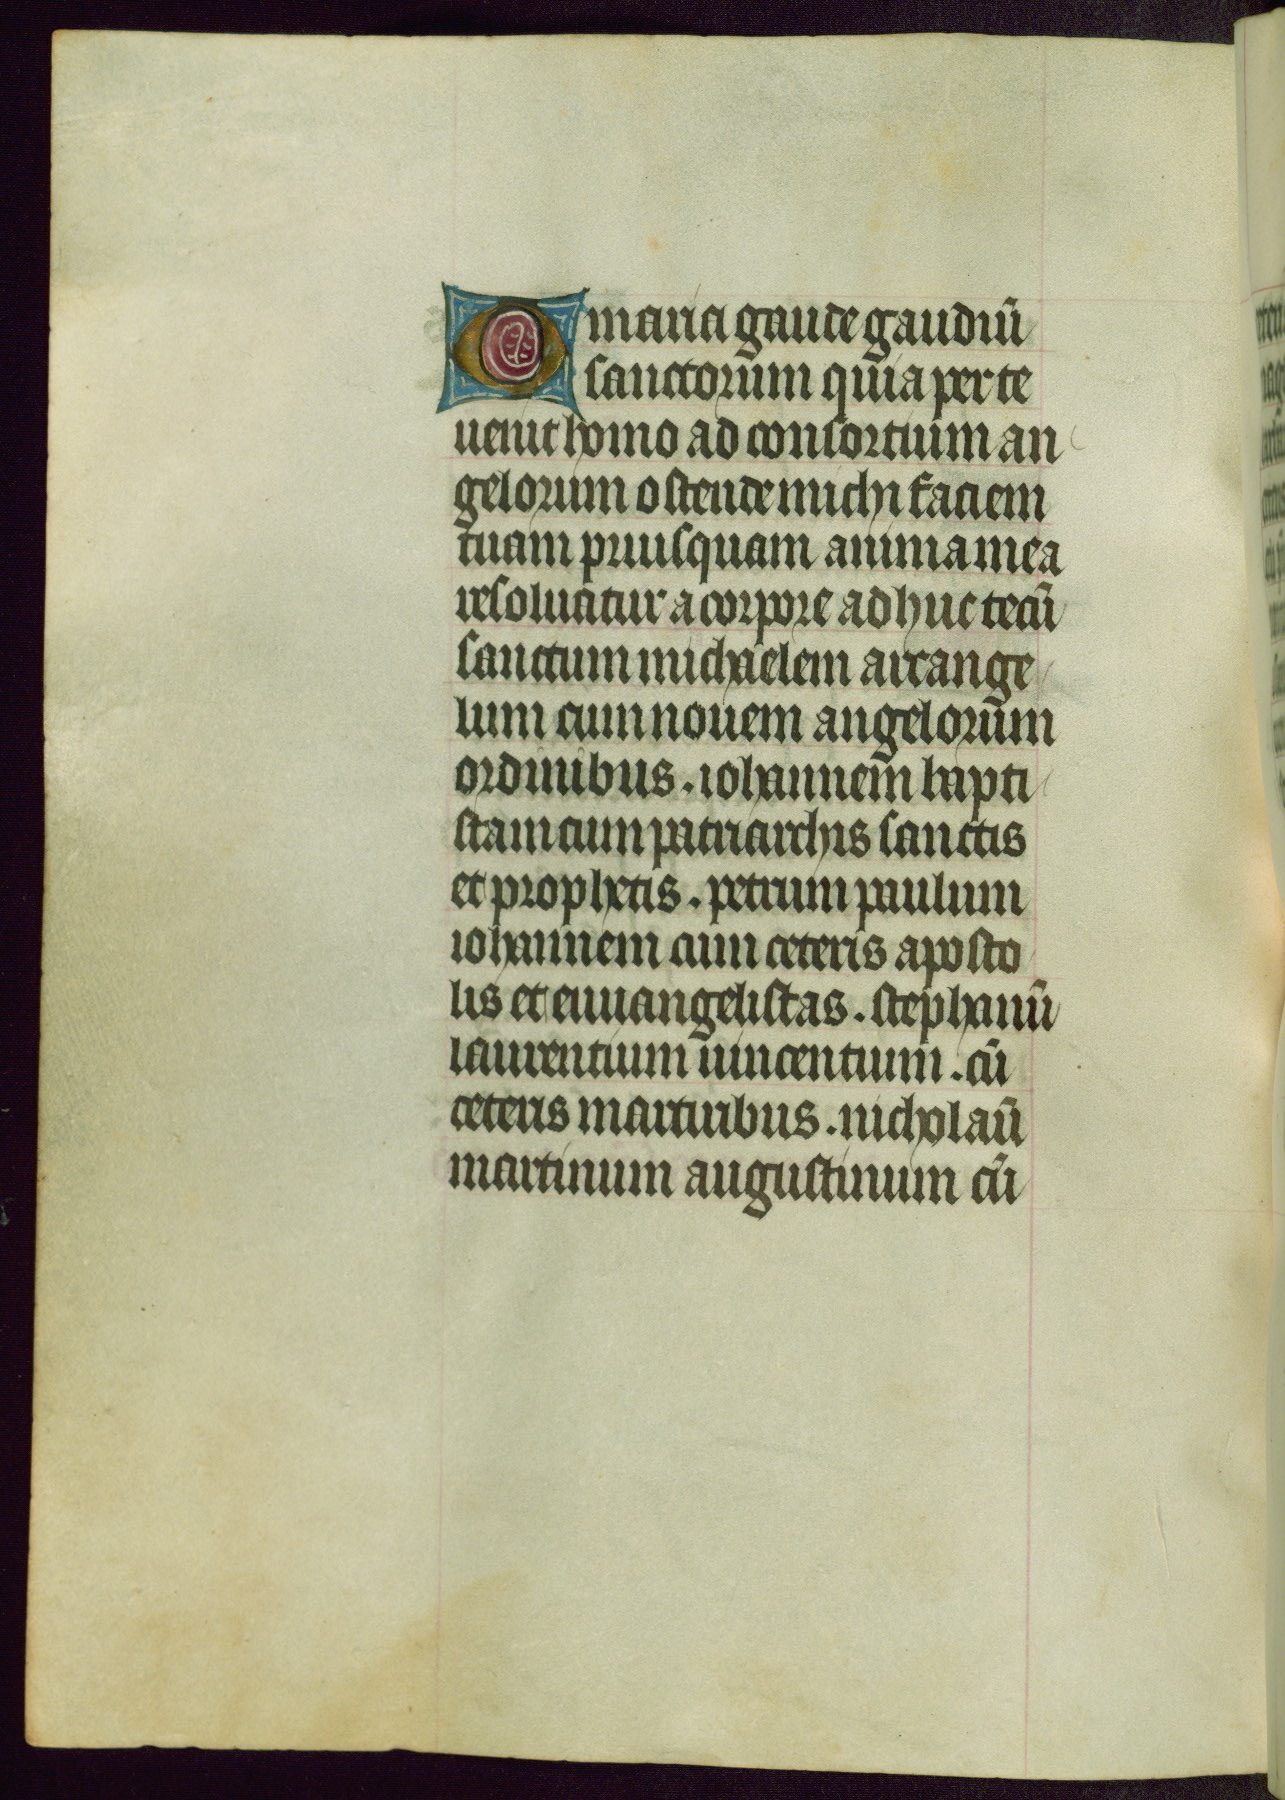 O maria gaude gaudiū
sanctorum quia per te
uenit homo ad consortium an
gelorum ostende michi faciem
tuam priusquam anima mea
resoluatur a corpore adhuc tecū
sanctum michaelem arcange
lum cum nouem angelorum
ordinibus . iohannem bapti
stam cum patriarchis sanctis
et prophetis . petrum paulum
iohannem cum ceteris aposto
lis et euuangelistas . stephanū
laurentium uincentium . cū
ceteris martiribus . nicholaū
martinum augustinum cū